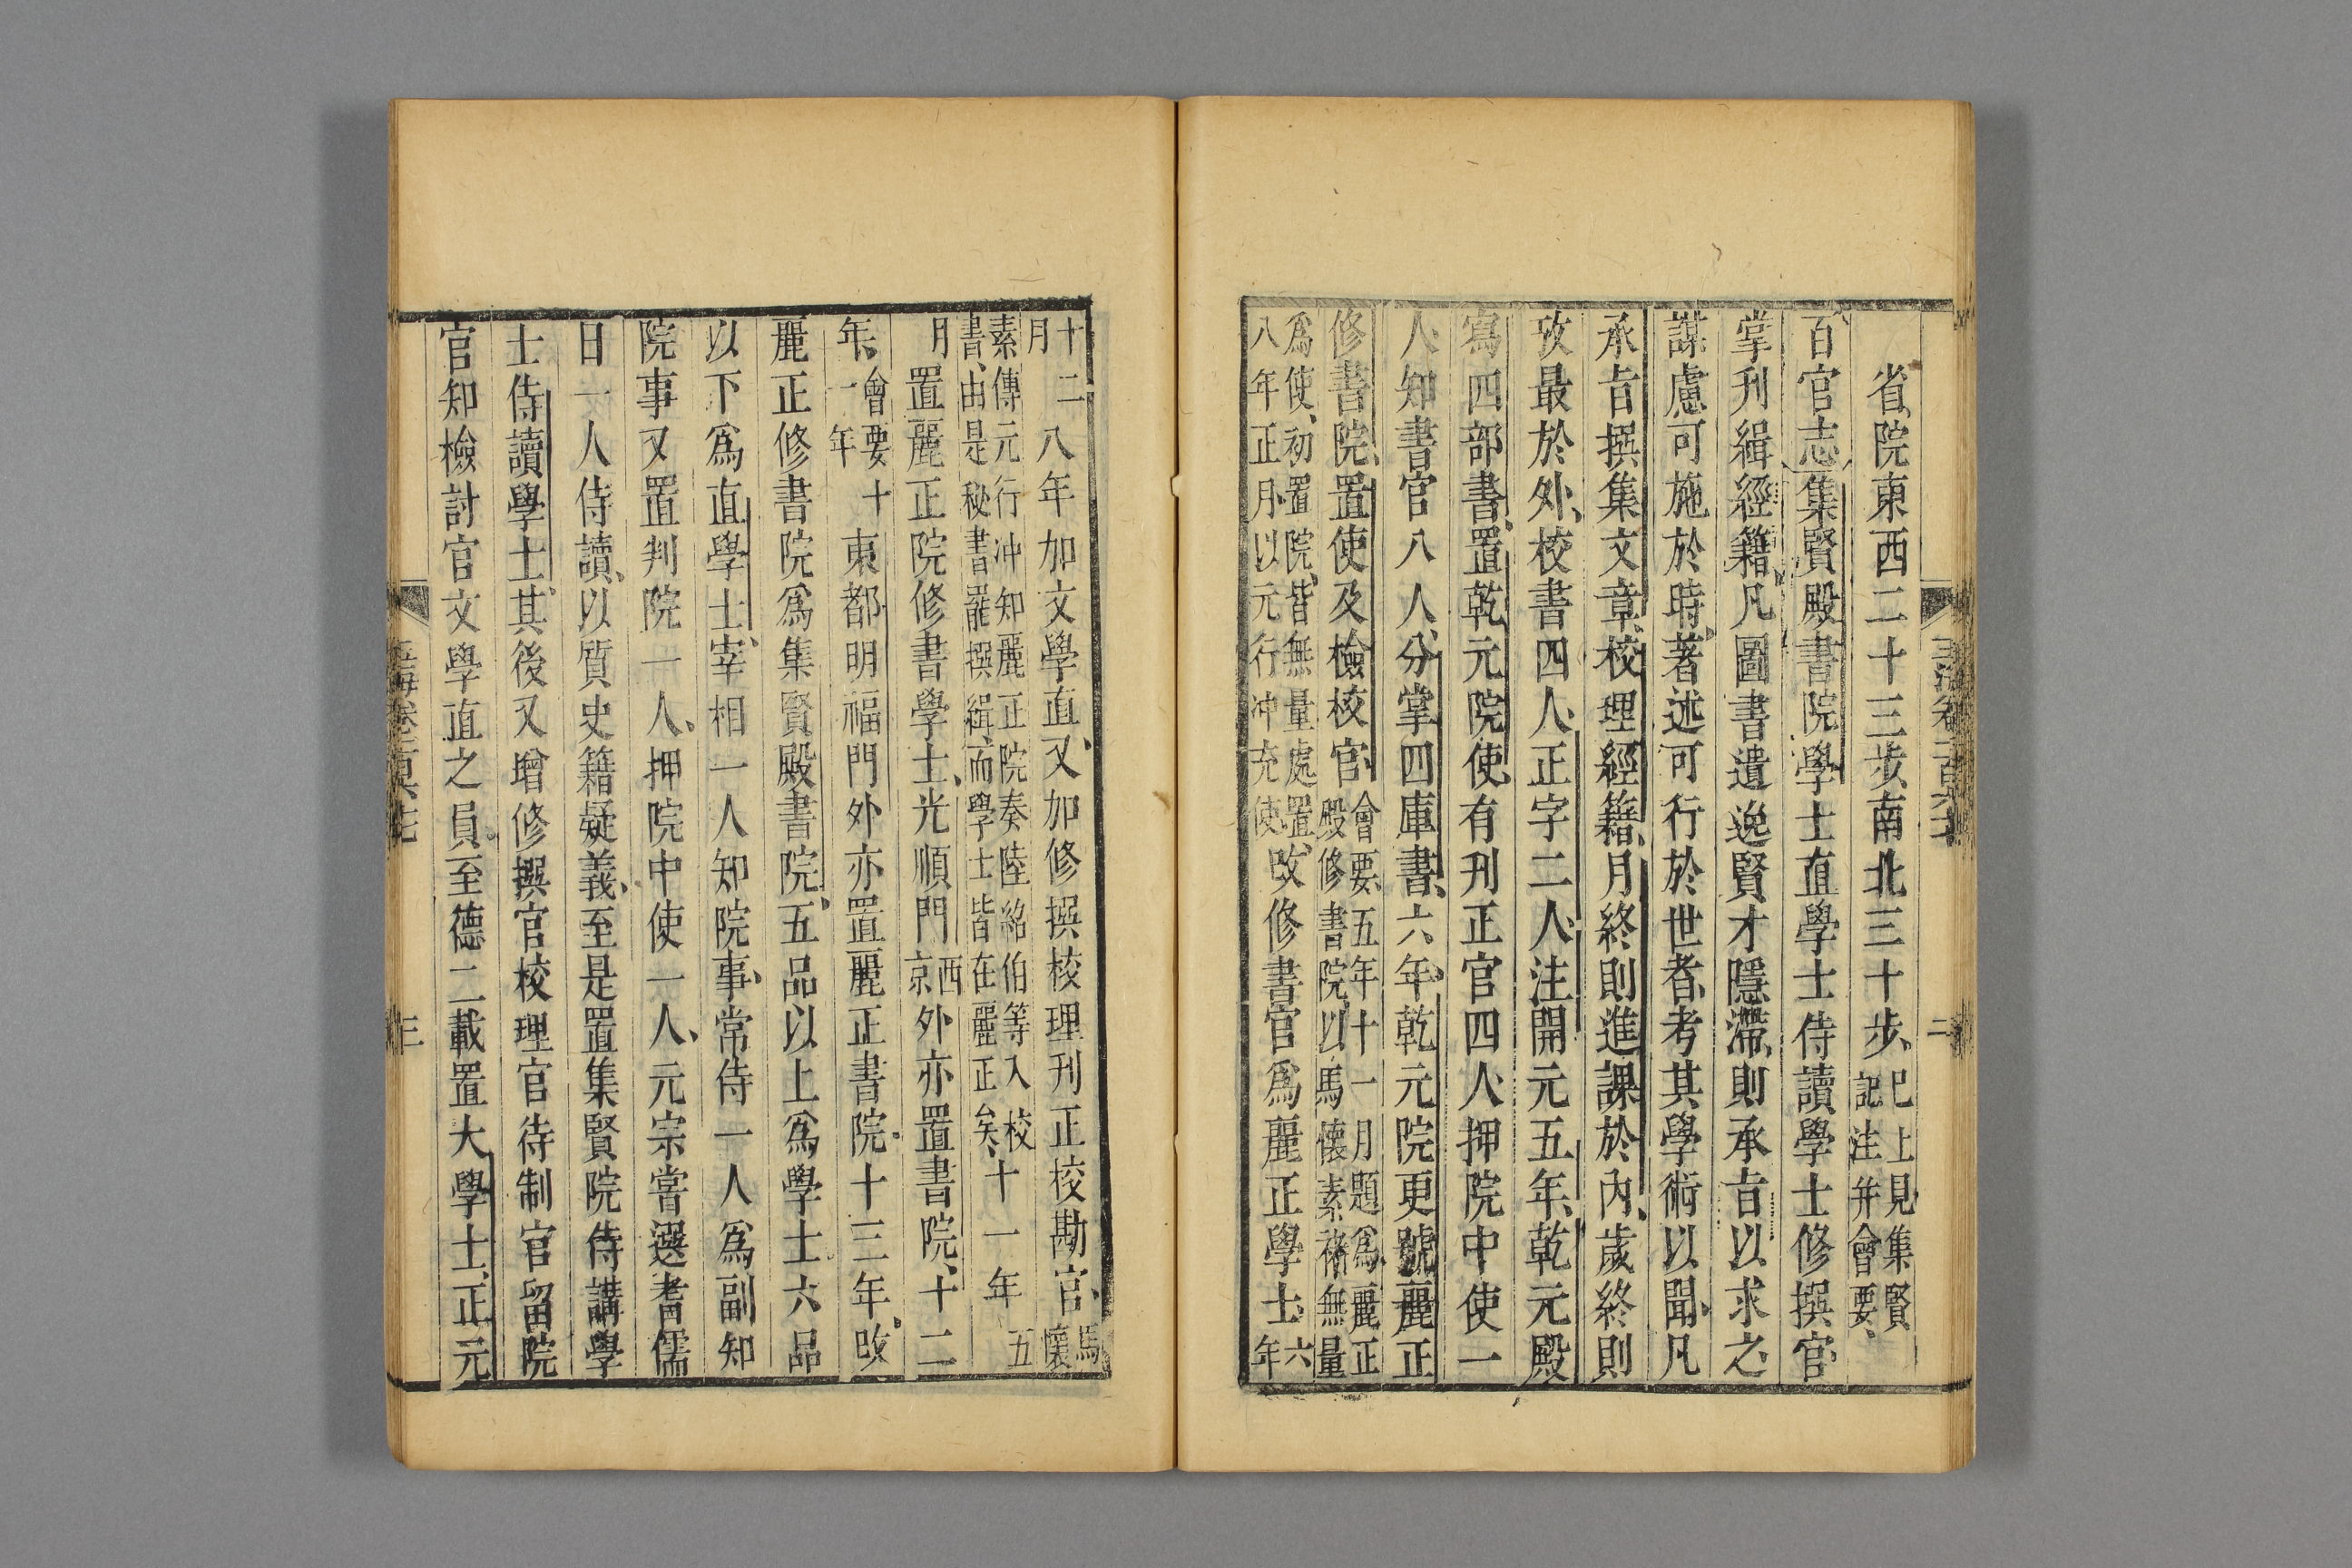 省院東西二十三步南北三十步已上見集賢
記注并會要
百官志集賢殿書院學士直學士侍讀學士修撰官
掌刊緝經籍凡圖書遺逸賢才隱滯則承旨以求之
謀慮可施於時著述可行於世者考其學術以聞凡
承旨撰集文章校理經籍月終則進課於內歲終則
攷最於外校書四人正字二人注開元五年乾元殿
寫四部書置乾元院使有刊正官四人押院中使一
人知書官八人分掌四庫書六年乾元院更號麗正
修書院置使及檢校官會要五年十一月題爲麗正
殿修書院以馬懷素褚無量
爲使初置院皆無量處置
八年正月以元行沖充使改修書官爲麗正學士六
年
十二
月八年加文學直又加修撰校理刊正校勘官馬
懷
素傳元行沖知麗正院奏陸紹伯等入校
書由是秘書罷撰緝而學士皆在麗正矣十一年五
月置麗正院修書學士光順門西
京外亦置書院十二
年會要十
一年東都明福門外亦置麗正書院十三年改
麗正修書院爲集賢殿書院五品以上爲學士六品
以下爲直學士宰相一人知院事常侍一人爲副知
院事又置判院一人押院中使一人元宗嘗選耆儒
日一人侍讀以質史籍疑義至是置集賢院侍講學
士侍讀學士其後又增修撰官校理官待制官留院
官知檢討官文學直之員至德二載置大學士正元
三